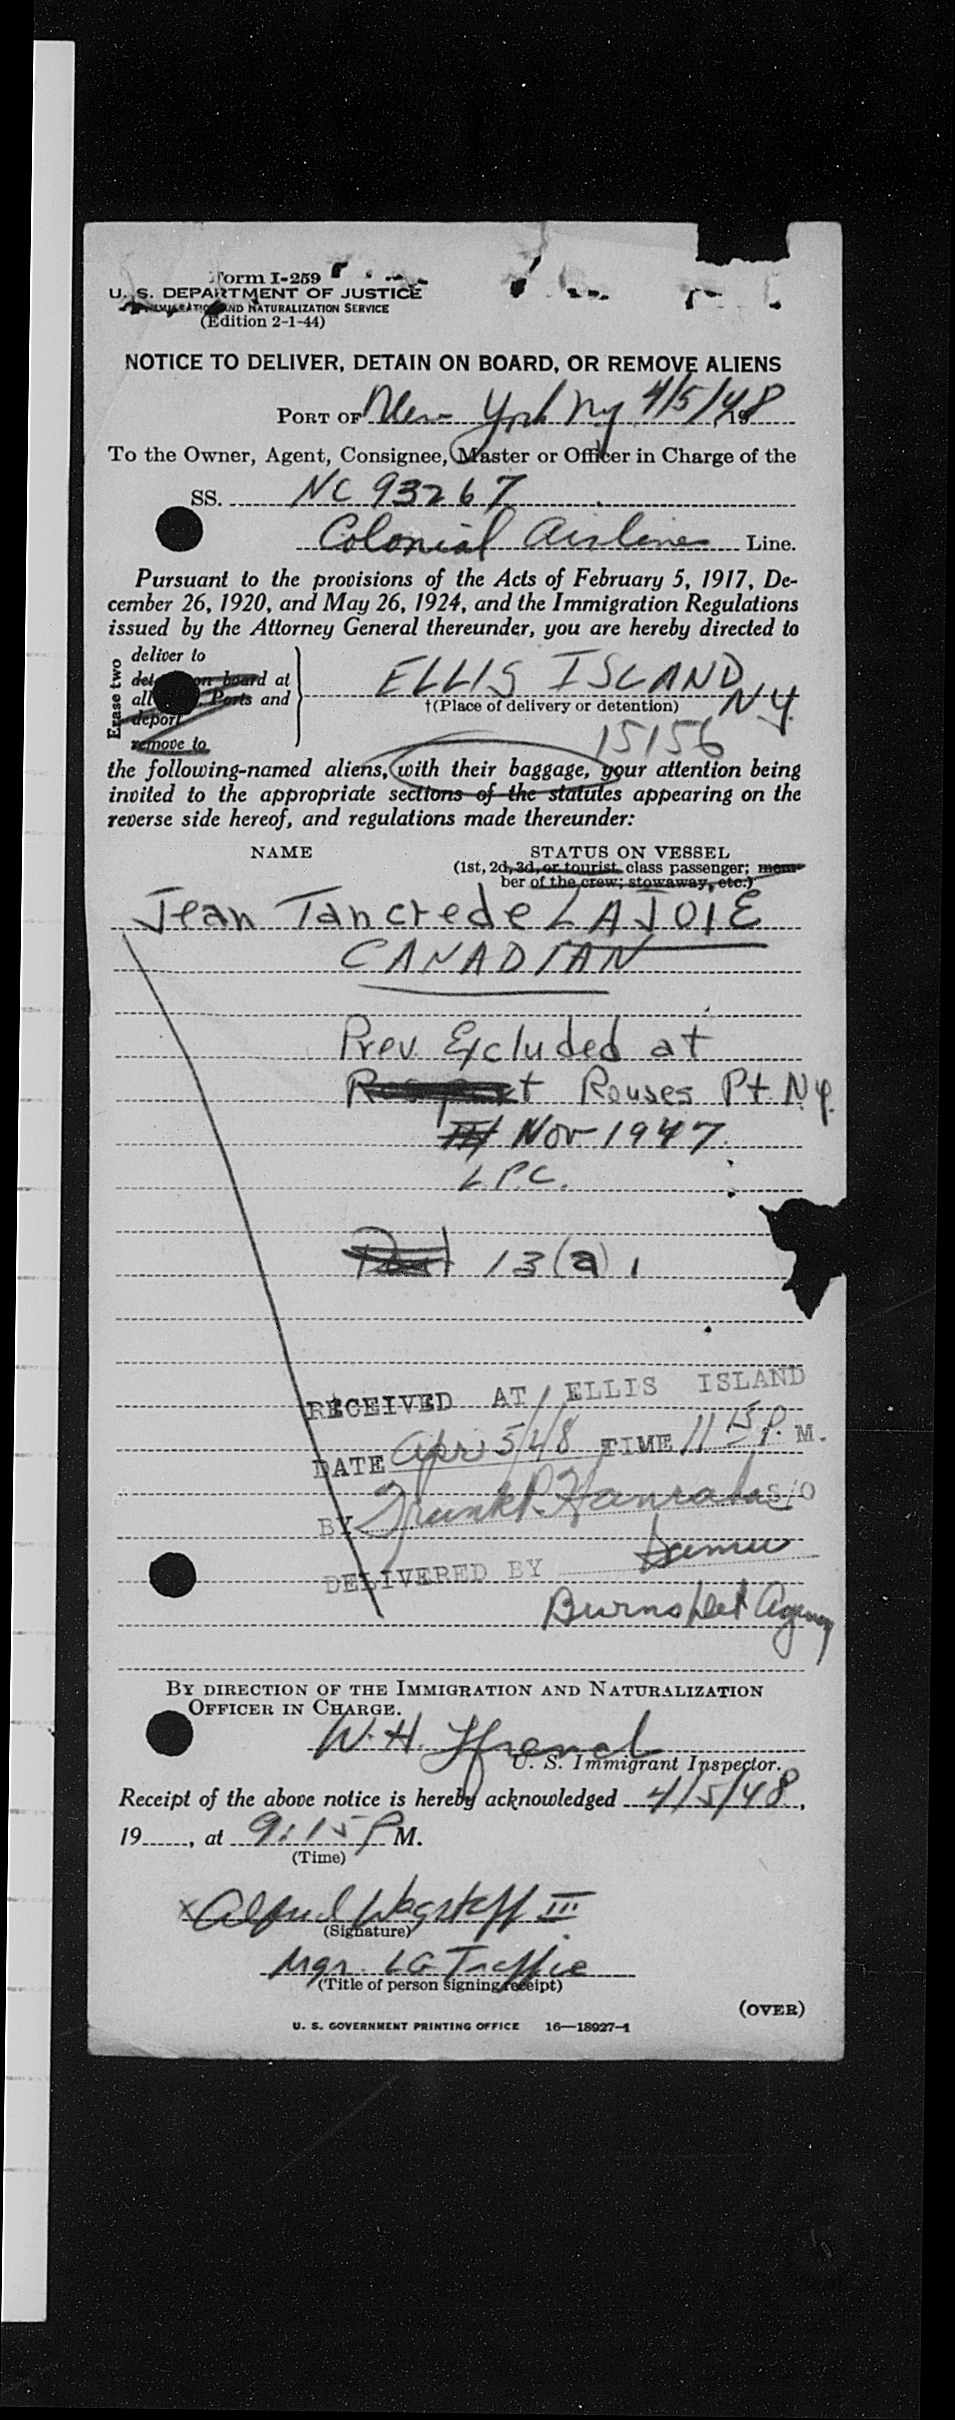 Form I-259
U. S. DEPARTMENT OF JUSTICE
IMMIGRATION AND NATURALIZATION SERVICE
(Edition 2-1-44)
NOTICE TO DELIVER, DETAIN ON BOARD, OR REMOVE ALIENS
PORT OF New York Ny 4/5/48, 19
To the Owner, Agent, Consignee, Master or Officer in Charge of the
SS. NC 93267
Colonial Airlines Line.
Pursuant to the provisions of the Acts of February 5, 1917, De-
cember 26, 1920, and May 26, 1924, and the Immigration Regulations
issued by the Attorney General thereunder, you are hereby directed to
Erase two
deliver to
on board at
all Ports and
deport
remove to
ELLIS ISLAND N.Y.
†(Place of delivery or detention)
15156
the following-named aliens, with their baggage, your attention being
invited to the appropriate sections of the statutes appearing on the
reverse side hereof, and regulations made thereunder:
NAME STATUS ON VESSEL
(1st, 2d, 3d, or tourist class passenger; mem-
ber of the crew; stowaway, etc.)
Jean Tancrede LAJOIE
CANADIAN
Prev. Excluded at
Rouses Pt. N.y.
Nov 1947
L.P.C.
13(a) 1
RECEIVED AT ELLIS ISLAND
DATE Apr 5/48 TIME 11 15 P. M.
BY Frank P. Hanrahan S/O
DELIVERED BY
Burns Det Agency
BY DIRECTION OF THE IMMIGRATION AND NATURALIZATION
OFFICER IN CHARGE.
W. H.
U. S. Immigrant Inspector.
Receipt of the above notice is hereby acknowledged 4/5/48,
19......, at 9:15 P M.
(Time)
x Alfred Wagstaff III
(Signature)
Mgr. LG Traffic
(Title of person signing receipt)
(OVER)
U. S. GOVERNMENT PRINTING OFFICE 16—18927-1